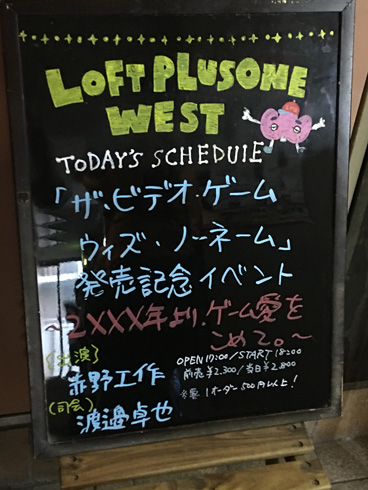 LOFT PLUSONE
WEST
TODAY'S SCHEDUlE
「ザ・ビデオ・ゲーム
ウィズ・ノーネーム」
発売記念イベント
〜2XXX年より、ゲーム愛を
こめて。〜
(出演)
赤野工作
OPEN 17:00 / START 18:00
前売¥2.300 / 当日¥2.800
要1オーダー500円以上!
(司会)
渡邉卓也